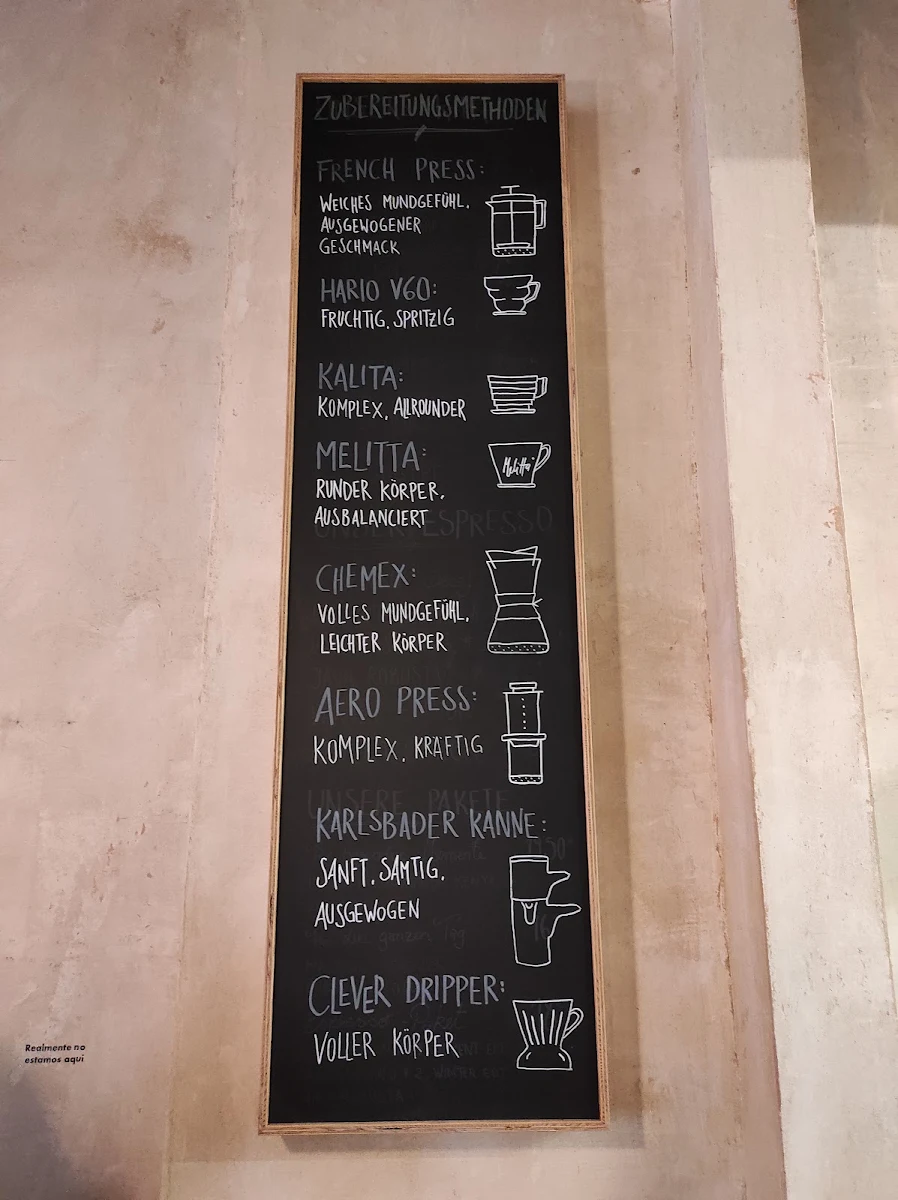 ZUBEREITUNGSMETHODEN
FRENCH PRESS:
WEICHES MUNDGEFÜHL,
AUSGEWOGENER
GESCHMACK
HARIO V60:
FRUCHTIG, SPRITZIG
KALITA:
KOMPLEX, ALLROUNDER
MELITTA:
Melitta
RUNDER KÖRPER,
AUSBALANCIERT
ESPRESSO
CHEMEX:
VOLLES MUNDGEFÜHL,
LEICHTER KÖRPER
AERO PRESS:
KOMPLEX, KRÄFTIG
UNSERE PAKETE
KARLSBADER KANNE:
SANFT, SAMTIG,
AUSGEWOGEN
CLEVER DRIPPER:
VOLLER KÖRPER
Realmente no
estamos aquí